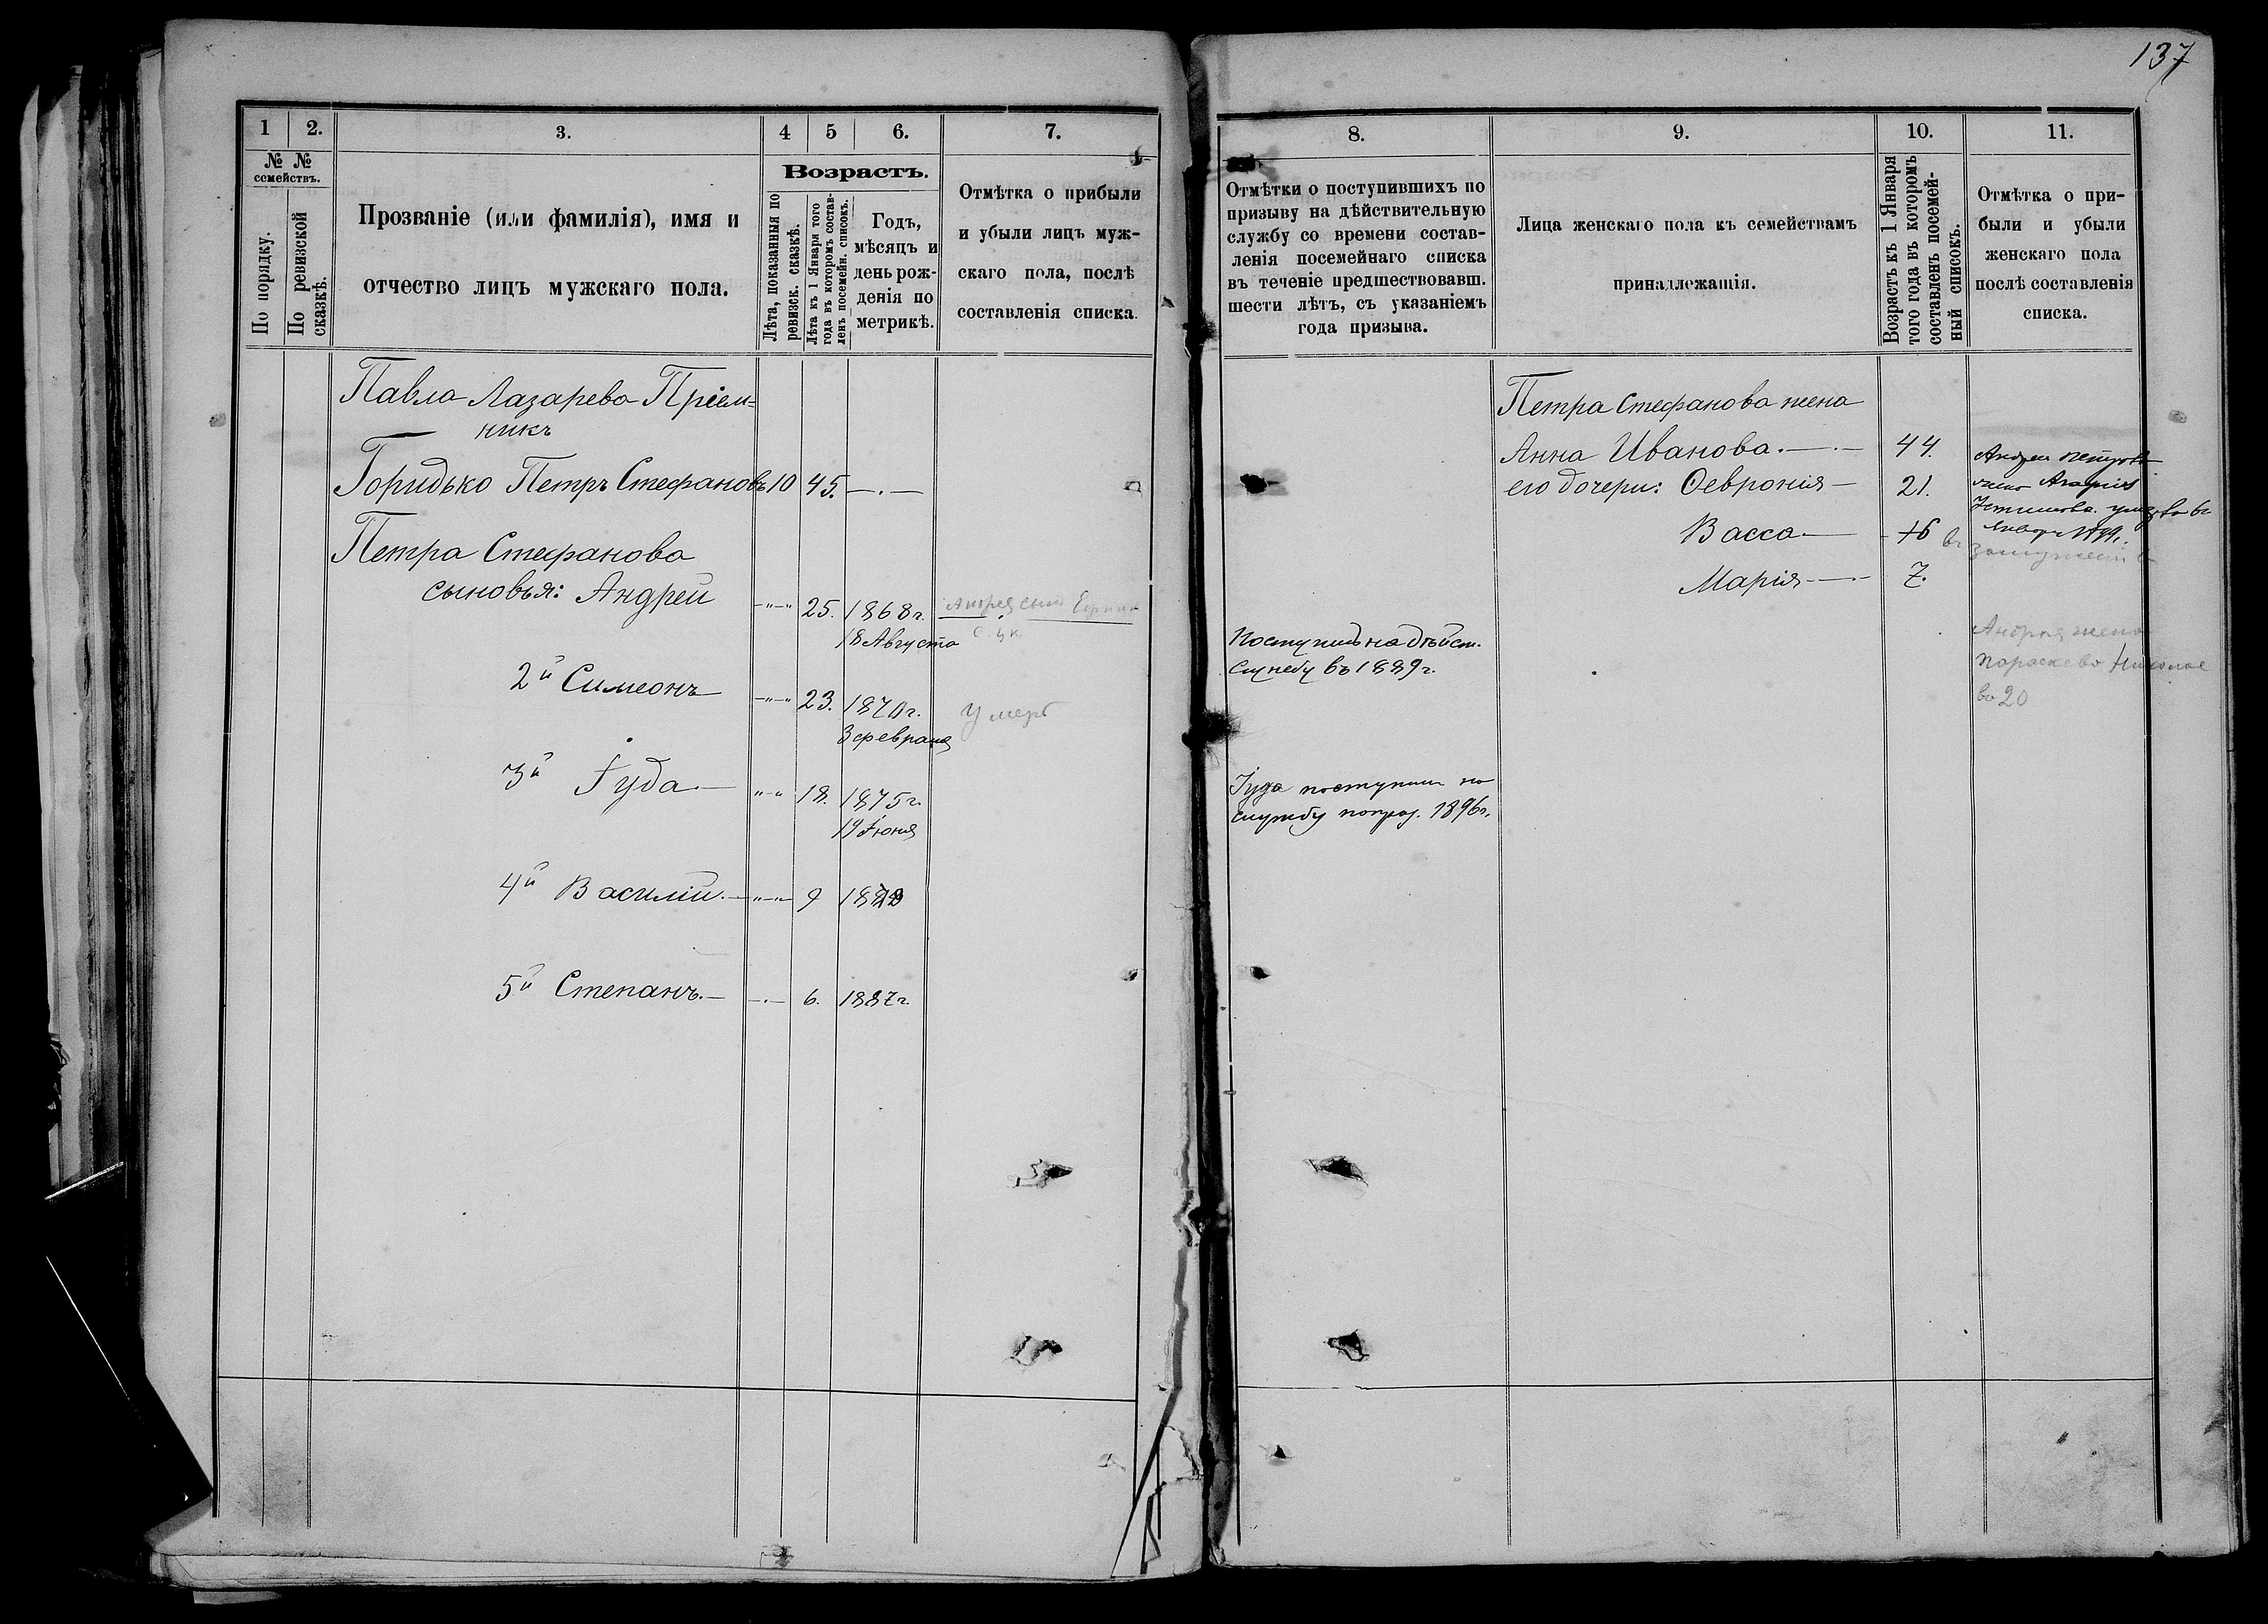 137
1
2.
3.
4
5
6.
7.
№ №
семействъ.
По порядку.
По ревизской
сказкѣ.
Прозваніе (или фамилія), имя и
отчество лицъ мужскаго пола.
Возрастъ.
Лѣта, показанныя по
ревизск. сказкѣ.
Лѣта къ 1 Января того
года въ которомъ состав-
ленъ посемейн. списокъ.
Годъ,
мѣсяцъ и
день рож-
денія по
метрикѣ.
Отмѣтка о прибыли
и убыли лицъ муж-
скаго пола, послѣ
составленія списка.
Павла Лазарева Пріем-
никъ
Горидько Петръ Стефановъ 10 45.
Петра Стефанова
сыновья: Андрей 25. 1868 г.
18 Августа
Андрея сынъ
2й Симеонъ 23. 1870 г. Умеръ
3 февраля
3й Іуда 18. 1875 г.
19 Іюня
4й Василій. 9
5й Степанъ. 6. 1887 г.
8.
9.
10.
11.
Отмѣтки о поступившихъ по
призыву на дѣйствительную
службу со времени состав-
ленія посемейнаго списка
въ теченіе предшествовавш.
шести лѣтъ, съ указаніемъ
года призыва.
Лица женскаго пола къ семействамъ
принадлежащія.
Возрастъ къ 1 Января
того года въ которомъ
составленъ посемей-
ный списокъ.
Отмѣтка о при-
были и убыли
женскаго пола
послѣ составленія
списка.
Петра Стефанова жена
Анна Иванова. 44.
его дочери: Ѳевронія 21.
Васса 16
Марія 7.
Андрея Петрова
жена
въ
замужест
Поступилъ на дѣйст.
службу въ 1889 г.
Андрея жена
Параскева
20
Іуда поступилъ на
службу 1896 г.